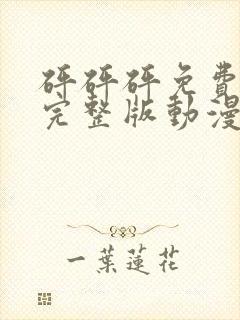 砰砰砰免費
完整版動漫
一葉蓮花